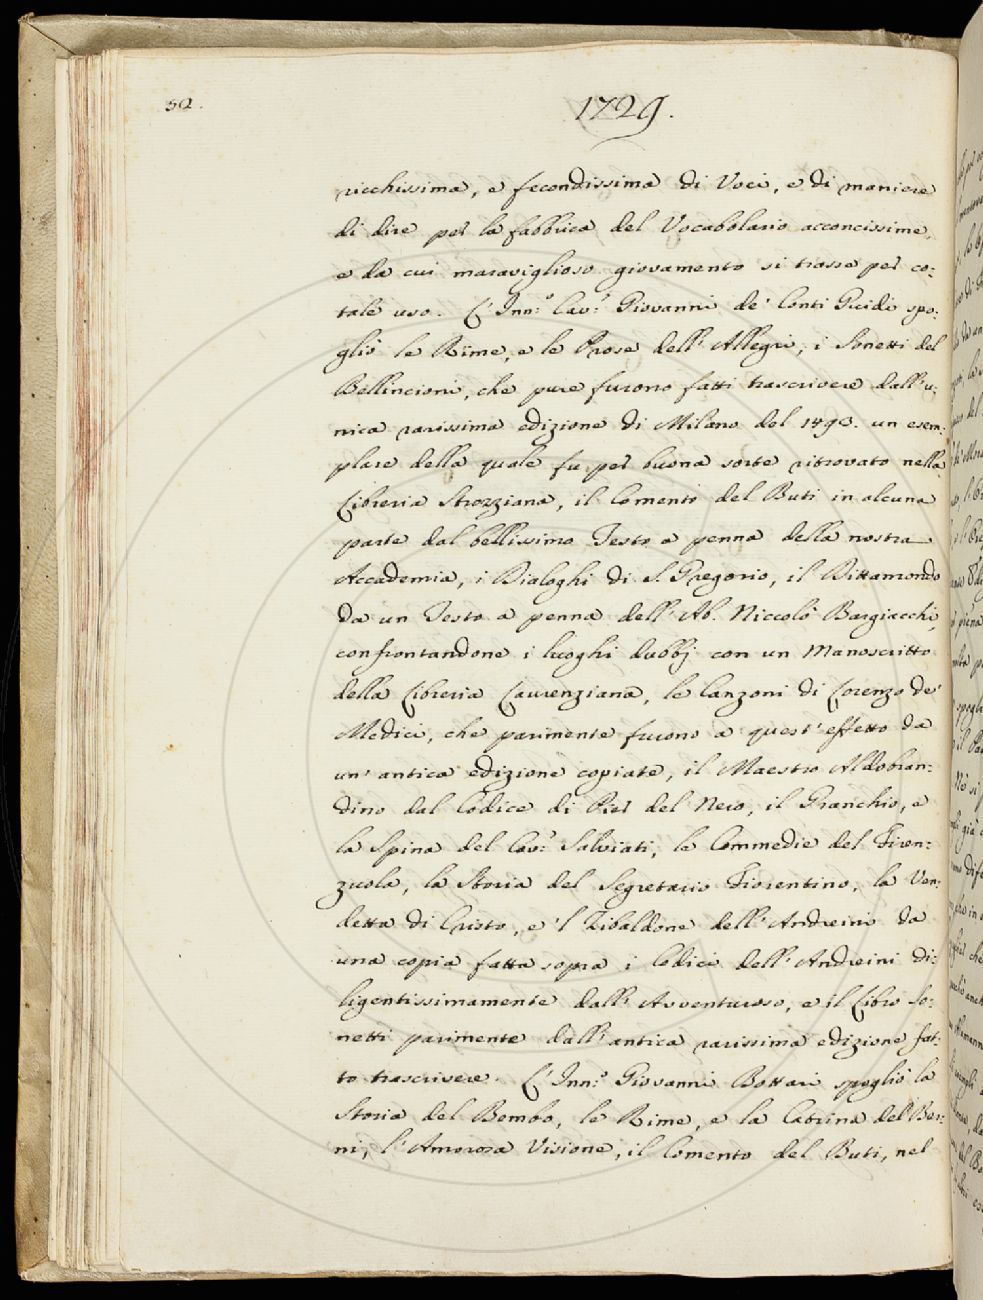 52.
1729.
ricchissima, e fecondissima di Voci, e di maniere
di dire per la fabbrica del Vocabolario acconcissime,
e da cui maraviglioso giovamento si trasse per co:
tale uso. L'Inn:° Cav:e Giovanni de' Conti Guidi spo:
gliò le Rime, e le Prose dell'Allegri, i Sonetti del
Bellincioni, che pure furono fatti trascrivere dall'u:
nica rarissima edizione di Milano del 1493. un esem:
plare della quale fu per buona sorte ritrovato nella
Libreria Strozziana, il Comento del Buti in alcuna
parte dal bellissimo Testo a penna della nostra
Accademia, i Dialoghi di S. Gregorio, il Dittamondo
da un Testo a penna dell'Ab. Niccolò Bargiacchi,
confrontandone i luoghi dubbj con un Manoscritto
della Libreria Laurenziana, le Canzoni di Lorenzo de'
Medici, che parimente furono a quest'effetto da
un'antica edizione copiate, il Maestro Aldobran:
dino dal Codice di Pier del Nero, il Granchio, e
la Spina del Cav:e Salviati, le Commedie del Firen:
zuola, la Storia del Segretario Fiorentino, la Ven:
detta di Cristo, e 'l Zibaldone dell'Andreini da
una copia fatta sopra i Codici dell'Andreini di:
ligentissimamente dall'Avventuroso, e il Libro So:
netti parimente dall'antica rarissima edizione fat:
to trascrivere. L'Inn:° Giovanni Bottari spogliò la
Storia del Bembo, le Rime, e la Catrina del Ber:
ni, l'Amorosa Visione, il Comento del Buti, nel